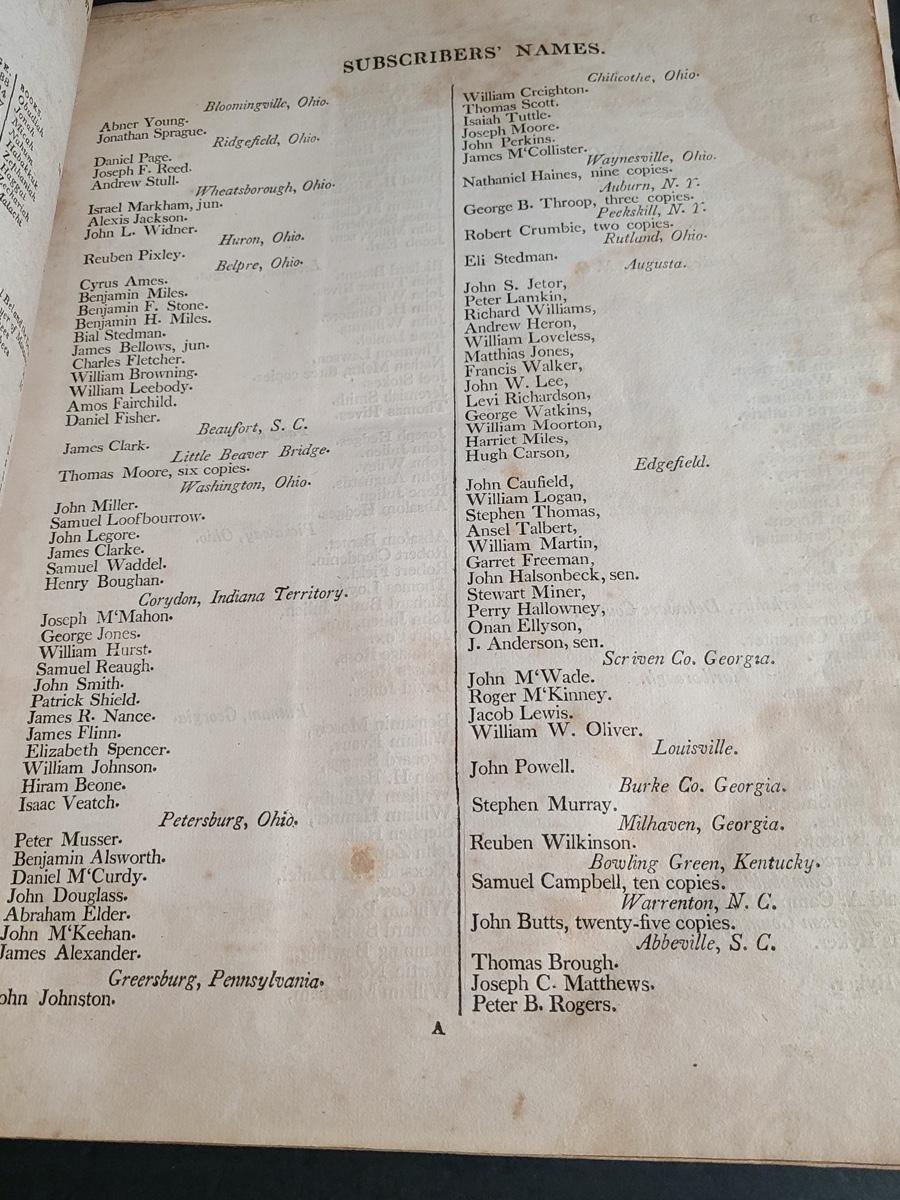 SUBSCRIBERS' NAMES.
Bloomingville, Ohio.
Abner Young.
Jonathan Sprague.
Ridgefield, Ohio.
Daniel Page.
Joseph F. Reed.
Andrew Stull.
Wheatsborough, Ohio.
Israel Markham, jun.
Alexis Jackson.
John L. Widner.
Huron, Ohio.
Reuben Pixley.
Belpre, Ohio.
Cyrus Ames.
Benjamin Miles.
Benjamin F. Stone.
Benjamin H. Miles.
Bial Stedman.
James Bellows, jun.
Charles Fletcher.
William Browning.
William Leebody.
Amos Fairchild.
Daniel Fisher.
Beaufort, S. C.
James Clark.
Little Beaver Bridge.
Thomas Moore, six copies.
Washington, Ohio.
John Miller.
Samuel Loofbourrow.
John Legore.
James Clarke.
Samuel Waddel.
Henry Boughan.
Corydon, Indiana Territory.
Joseph M‘Mahon.
George Jones.
William Hurst.
Samuel Reaugh.
John Smith.
Patrick Shield.
James R. Nance.
James Flinn.
Elizabeth Spencer.
William Johnson.
Hiram Beone.
Isaac Veatch.
Petersburg, Ohio.
Peter Musser.
Benjamin Alsworth.
Daniel M‘Curdy.
John Douglass.
Abraham Elder.
John M‘Keehan.
James Alexander.
Greersburg, Pennsylvania.
ohn Johnston.
Chilicothe, Ohio.
William Creighton.
Thomas Scott.
Isaiah Tuttle.
Joseph Moore.
John Perkins.
James M‘Collister.
Waynesville, Ohio.
Nathaniel Haines, nine copies.
Auburn, N. Y.
George B. Throop, three copies.
Peekskill, N. Y.
Robert Crumbie, two copies.
Rutland, Ohio.
Eli Stedman.
Augusta.
John S. Jetor,
Peter Lamkin,
Richard Williams,
Andrew Heron,
William Loveless,
Matthias Jones,
Francis Walker,
John W. Lee,
Levi Richardson,
George Watkins,
William Moorton,
Harriet Miles,
Hugh Carson,
Edgefield.
John Caufield,
William Logan,
Stephen Thomas,
Ansel Talbert,
William Martin,
Garret Freeman,
John Halsonbeck, sen.
Stewart Miner,
Perry Hallowney,
Onan Ellyson,
J. Anderson, sen.
Scriven Co. Georgia.
John M‘Wade.
Roger M‘Kinney.
Jacob Lewis.
William W. Oliver.
Louisville.
John Powell.
Burke Co. Georgia.
Stephen Murray.
Milhaven, Georgia.
Reuben Wilkinson.
Bowling Green, Kentucky.
Samuel Campbell, ten copies.
Warrenton, N. C.
John Butts, twenty-five copies.
Abbeville, S. C.
Thomas Brough.
Joseph C. Matthews.
Peter B. Rogers.
A